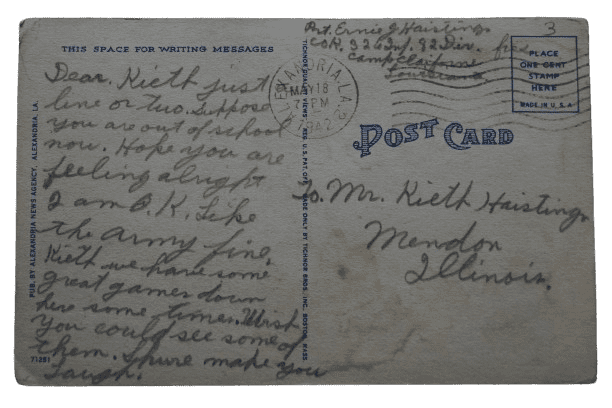 THIS SPACE FOR WRITING MESSAGES
Dear. Kieth just
line or two. Suppose
you are out of school
now. Hope you are
feeling alright
I am O.K. Like
the army fine.
Kieth we have some
great games down
here some times. Wish
you could see some of
them. Shure make you
laugh.
71281
PUB. BY ALEXANDRIA NEWS AGENCY, ALEXANDRIA, LA.
Pvt. Ernie J Haistings
Co K, 326 Inf. 82 Div.
Camp Claiborne
Louisiana
free
3
ALEXANDRIA, LA.
MAY 18
PM
1942
PLACE
ONE CENT
STAMP
HERE
MADE IN U.S.A
POST CARD
To Mr. Kieth Haistings
Mendon
Illinois.
MADE ONLY BY TICHNOR BROS., INC. BOSTON, MASS